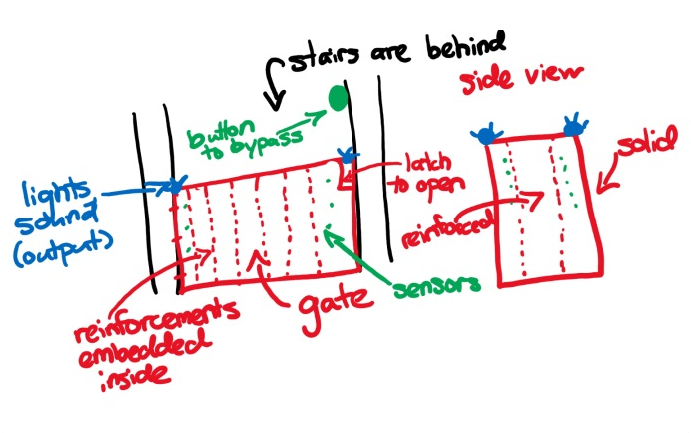 stairs are behind
side view
button
to bypass
latch
to open
solid
lights
sound
(output)
reinforced
sensors
gate
reinforcements
embedded
inside